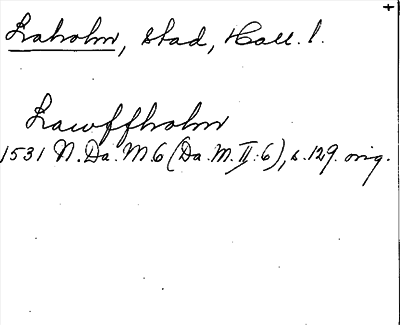 Laholm, stad, Hall. l.
Lawffholm
1531 N. Da. M. 6 (Da. M. II: 6), s. 129. orig.